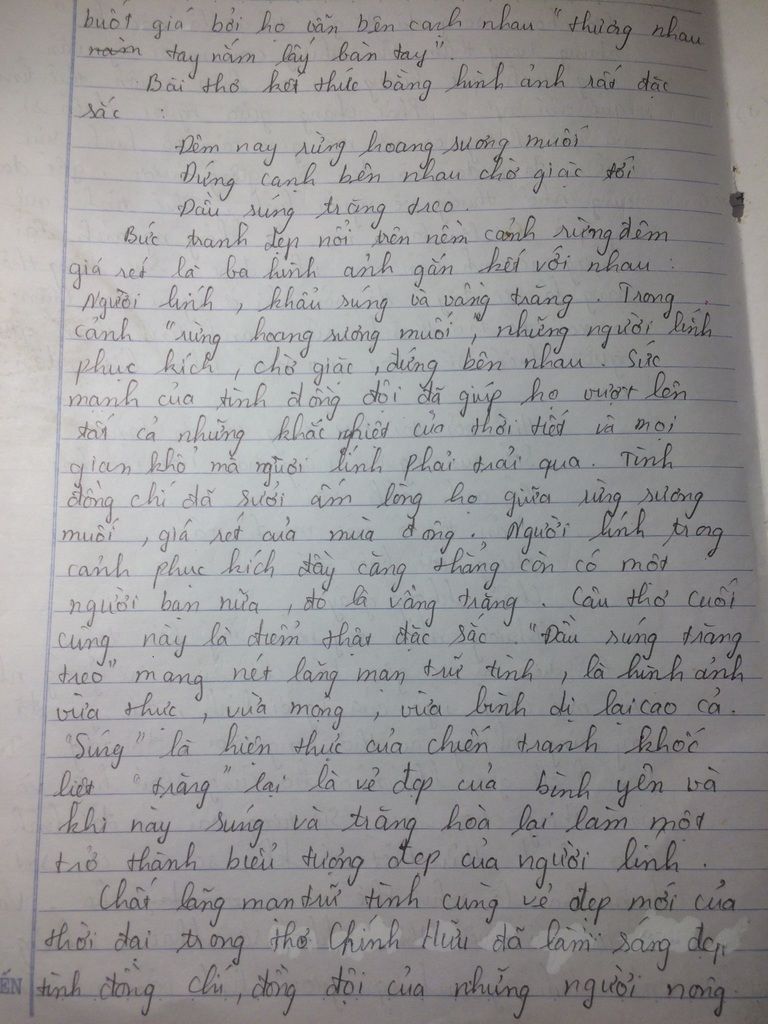 buốt giá bởi họ vẫn bên cạnh nhau "thương nhau
nằm tay nắm lấy bàn tay".
Bài thơ kết thúc bằng hình ảnh rất đặc
sắc :
Đêm nay rừng hoang sương muối
Đứng cạnh bên nhau chờ giặc tới
Đầu súng trăng treo.
Bức tranh đẹp nổi trên nềm cảnh rừng đêm
giá rét là ba hình ảnh gắn kết với nhau :
Người lính , khẩu súng và vầng trăng . Trong
cảnh "rừng hoang sương muối", những người lính
phục kích , chờ giặc , đứng bên nhau . Sức
mạnh của tình đồng đội đã giúp họ vượt lên
tất cả những khắc nghiệt của thời tiết và mọi
gian khổ mà người lính phải trải qua . Tình
đồng chí đã sưởi ấm lòng họ giữa rừng sương
muối , giá rét của mùa đông . Người lính trong
cảnh phục kích đầy căng thẳng còn có một
người bạn nữa , đó là vầng trăng . Câu thơ cuối
cùng này là điểm thật đặc sắc . "Đầu súng trăng
treo" mang nét lãng mạn trữ tình , là hình ảnh
vừa thực , vừa mộng , vừa bình dị lại cao cả .
"Súng" là hiện thực của chiến tranh khốc
liệt "trăng" lại là vẻ đẹp của bình yên và
khi này súng và trăng hoà lại làm một
trở thành biểu tượng đẹp của người lính .
Chất lãng mạn trữ tình cùng vẻ đẹp mới của
thời đại trong thơ Chính Hữu đã làm sáng đẹp
tình đồng chí, đồng đội của những người nông
ẾN